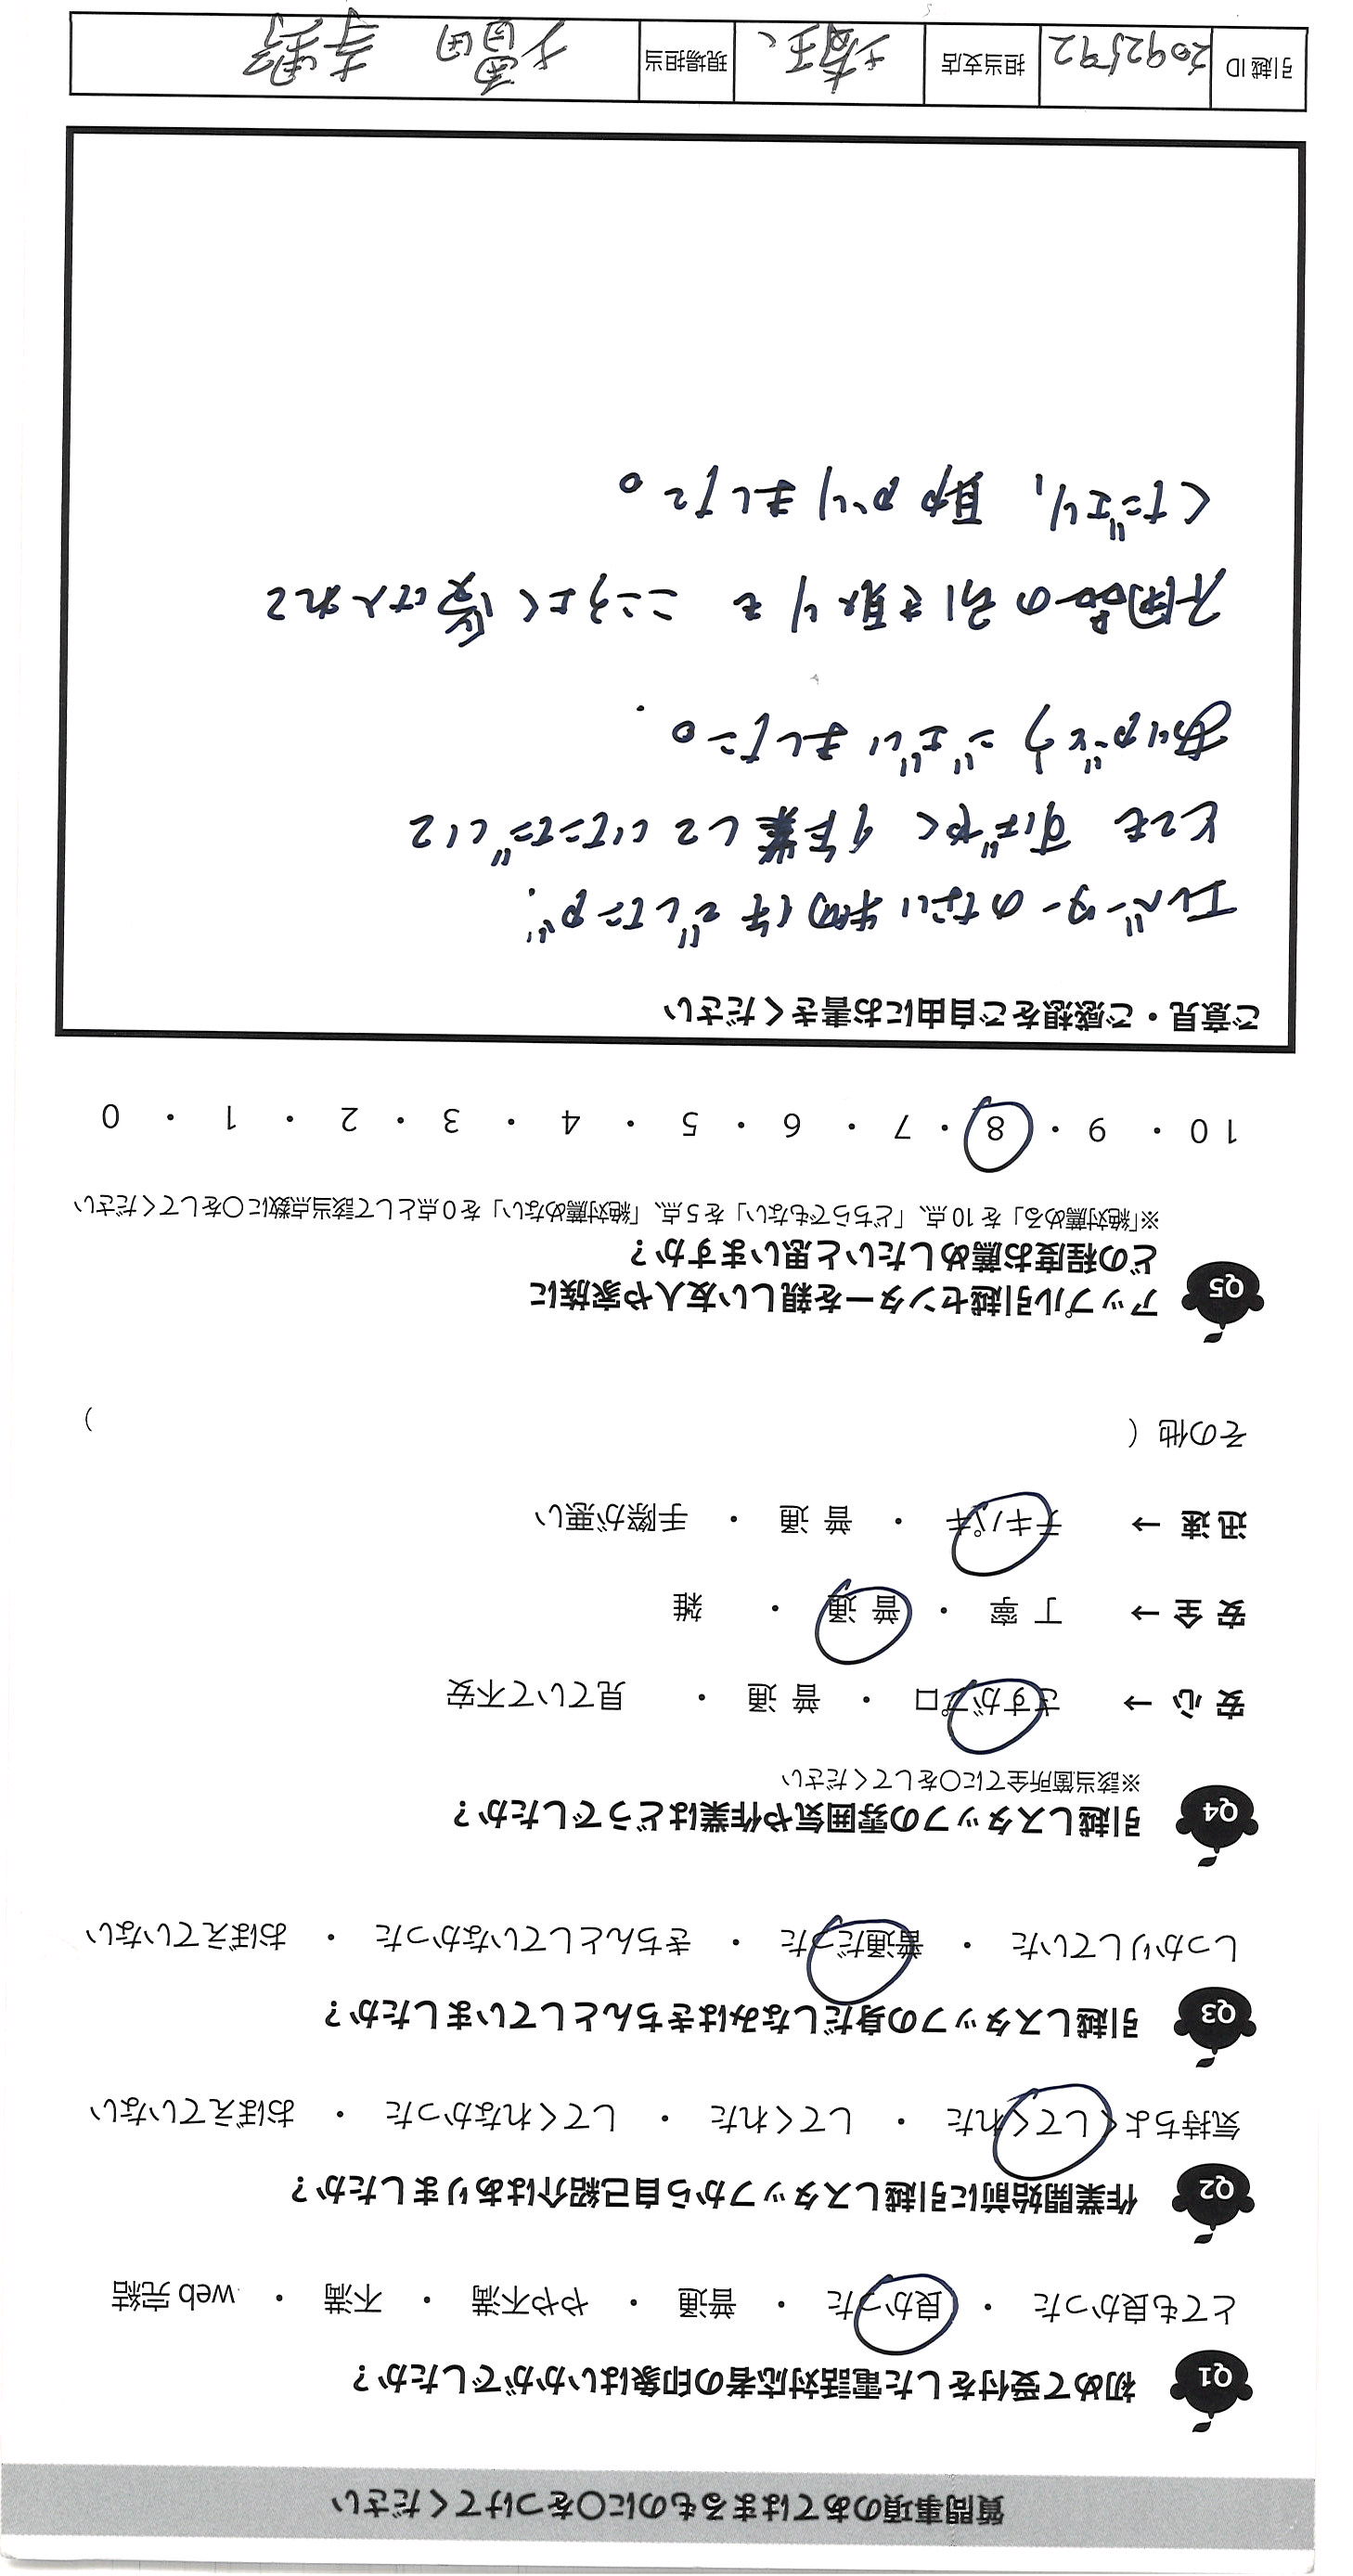 質問事項のあてはまるものに〇をつけてください
Q1 初めて受付をした電話対応者の印象はいかがでしたか？
とても良かった ・ 良かった ・ 普通 ・ やや不満 ・ 不満 ・ web 完結
Q2 作業開始前に引越しスタッフから自己紹介はありましたか？
気持ちよくしてくれた ・ してくれた ・ してくれなかった ・ おぼえていない
Q3 引越しスタッフの身だしなみはきちんとしていましたか？
しっかりしていた ・ 普通だった ・ きちんとしていなかった ・ おぼえていない
Q4 引越しスタッフの雰囲気や作業はどうでしたか？
※該当箇所全てに〇をしてください
安 心 → さすがプロ ・ 普 通 ・ 見ていて不安
安 全 → 丁 寧 ・ 普 通 ・ 雑
迅 速 → テキパキ ・ 普 通 ・ 手際が悪い
その他 （ ）
Q5 アップル引越センターを親しい友人や家族に
どの程度お薦めしたいと思いますか？
※「絶対薦める」を 10 点、「どちらでもない」を 5 点、「絶対薦めない」を 0 点として該当点数に〇をしてください
10 ・ 9 ・ 8 ・ 7 ・ 6 ・ 5 ・ 4 ・ 3 ・ 2 ・ 1 ・ 0
ご意見・ご感想をご自由にお書きください
エレベーターのない物件でしたが、
とても すばやく 作業していただいて
ありがとうございました。
不用品の引き取りも こころよく受け入れて
くださり、助かりました。
引越 ID 2092592 担当支店 埼玉 現場担当